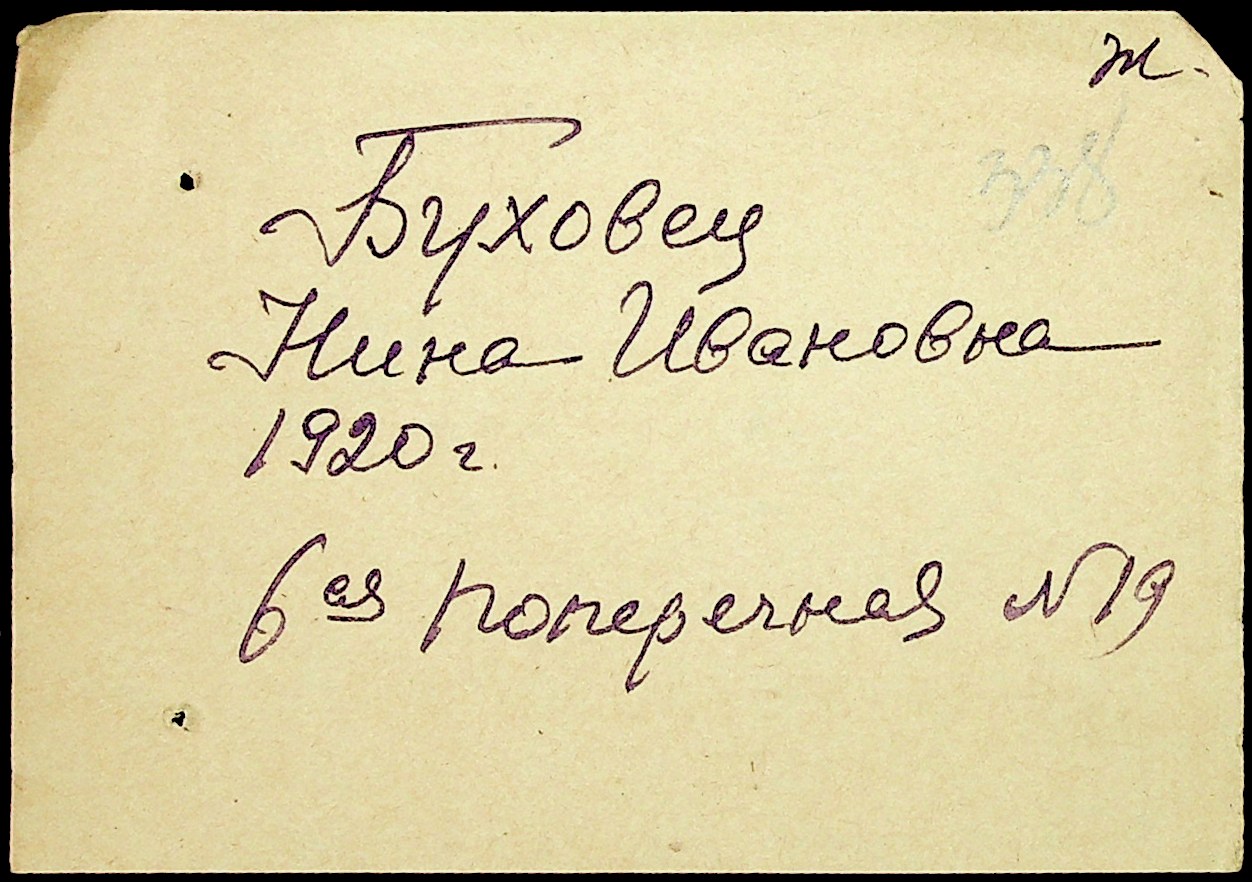 ж.
338
Буховец
Нина Ивановна
1920 г.
6ая поперечная №19